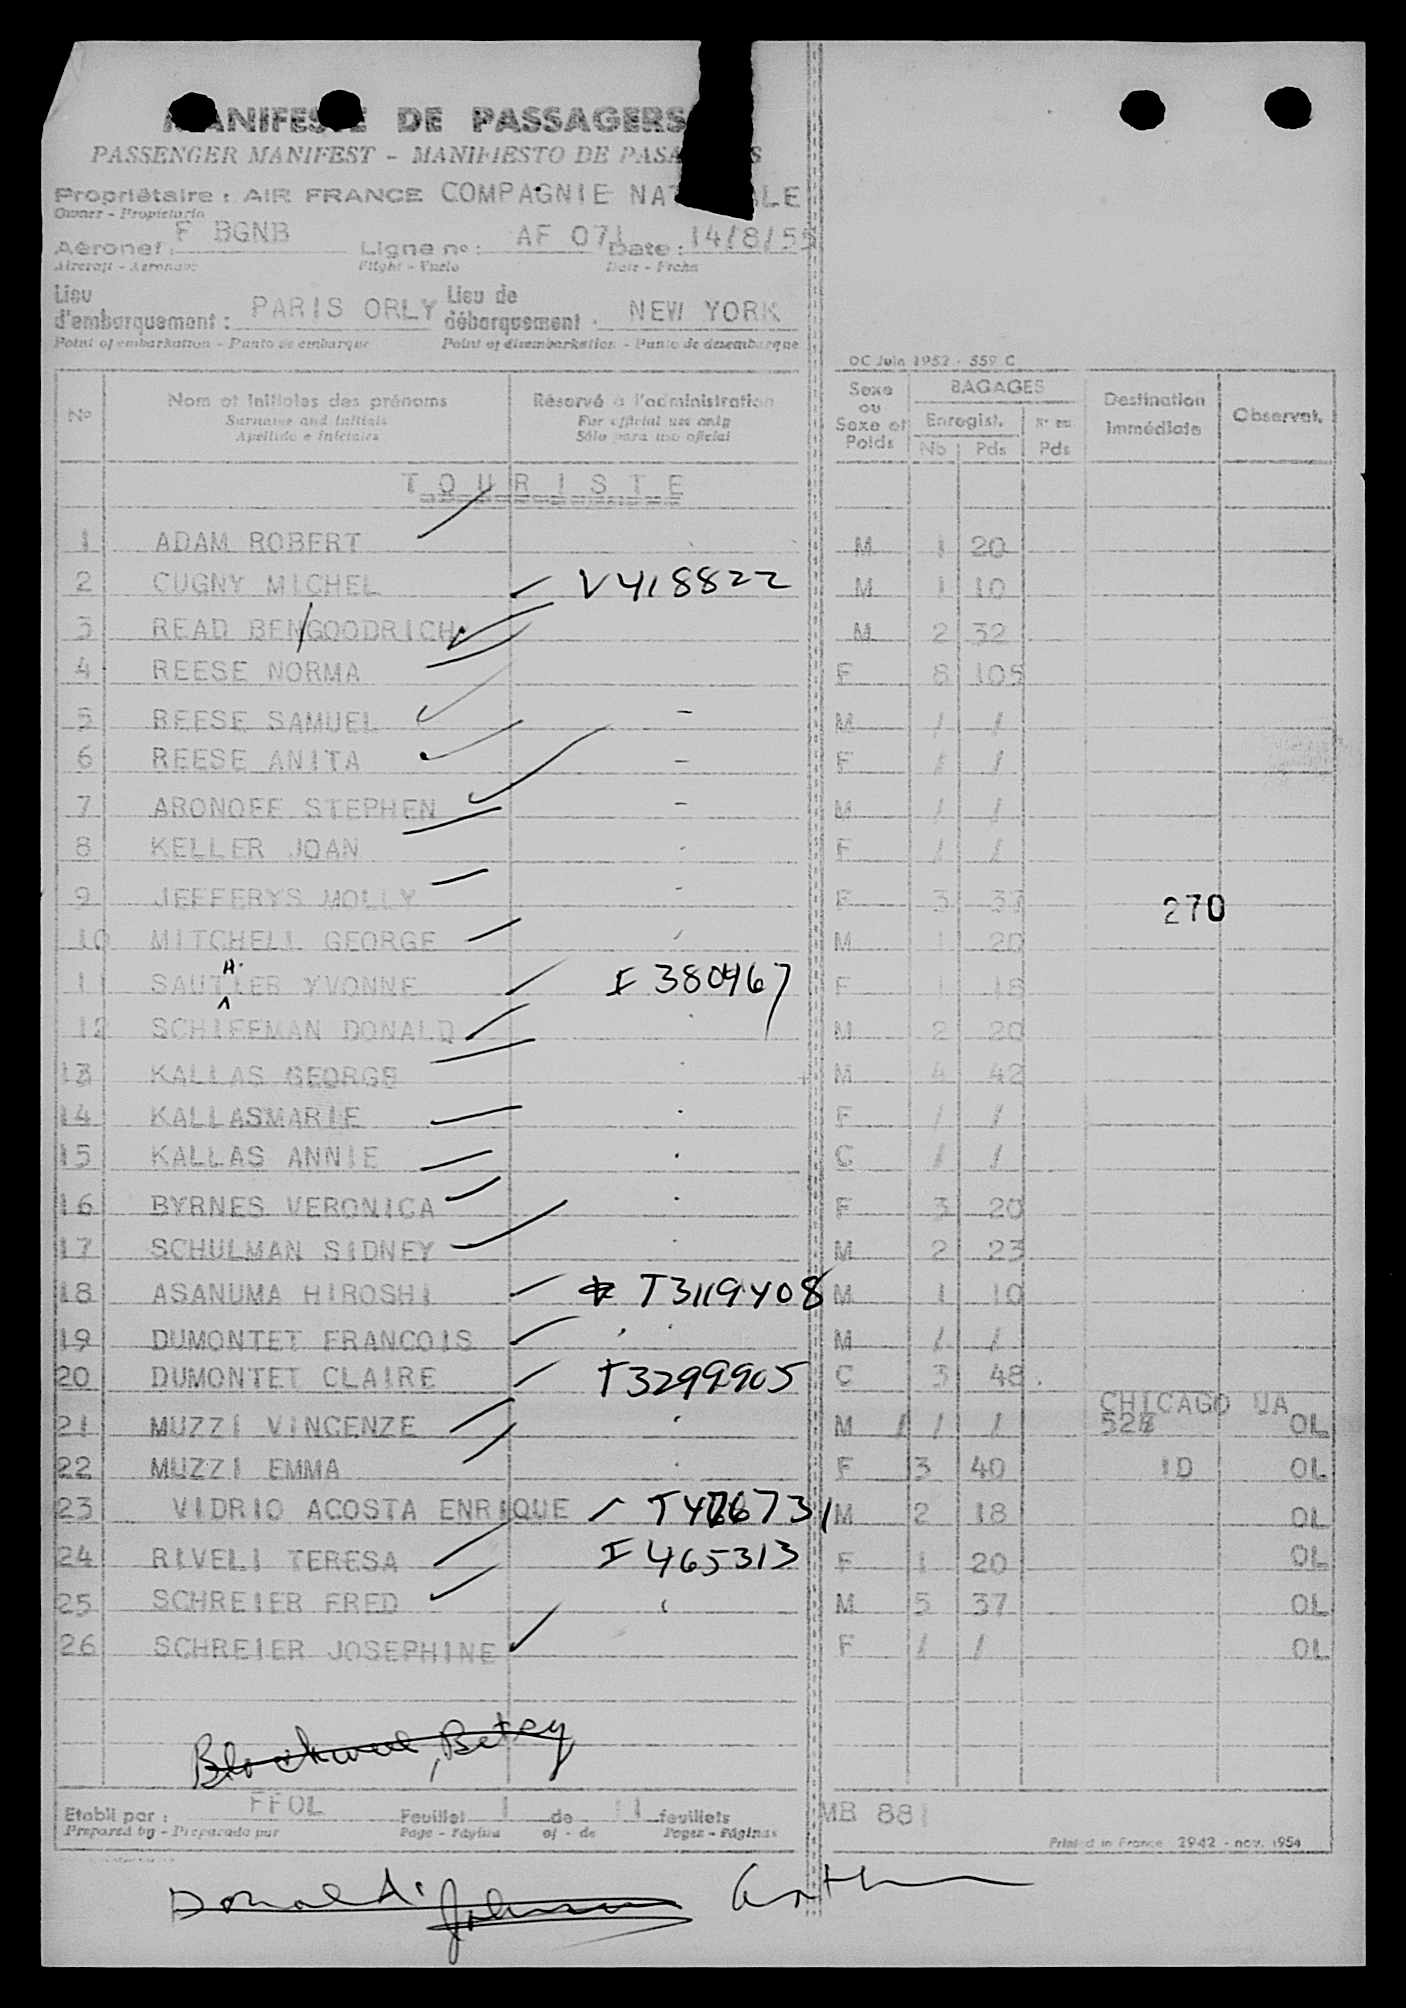 MANIFESTE DE PASSAGERS
PASSENGER MANIFEST - MANIFIESTO DE PASA
Propriétaire : AIR FRANCE COMPAGNIE NAT
Owner - Propietario
Aéronef : F BGNB Ligne nº : AF 071 Date : 14/8/55
Aircraft - Aeronave Flight - Vuelo Date - Fecha
Lieu d'embarquement : PARIS ORLY Lieu de débarquement : NEW YORK
Point of embarkation - Punto de embarque Point of disembarkation - Punto de desembarque
OC Juin 1952 - 559 C
Nº Nom et initiales des prénoms Réservé à l'administration Sexe ou Sexe et Poids BAGAGES Destination immédiate Observat.
Surname and initials For official use only Enregist.
Apellido e iniciales Sólo para uso oficial Nb Pds Pds
TOURISTE
1 ADAM ROBERT M 1 20
2 CUGNY MICHEL V418822 M 1 10
3 READ BEN/GOODRICH M 2 32
4 REESE NORMA F 8 105
5 REESE SAMUEL - M / /
6 REESE ANITA - F / /
7 ARONOFF STEPHEN - M / /
8 KELLER JOAN F / /
9 JEFFERYS MOLLY - F 3 33 270
10 MITCHELL GEORGE M 1 20
11 SAUTIER YVONNE I 380467 F 1 18
12 SCHIFFMAN DONALD M 2 20
13 KALLAS GEORGE M 4 42
14 KALLASMARIE F / /
15 KALLAS ANNIE C / /
16 BYRNES VERONICA F 3 20
17 SCHULMAN SIDNEY M 2 23
18 ASANUMA HIROSHI T3119408 M 1 10
19 DUMONTET FRANCOIS M / /
20 DUMONTET CLAIRE T3299905 C 3 48
21 MUZZI VINCENZE M / / / CHICAGO UA OL
22 MUZZI EMMA F 3 40 ID OL
23 VIDRIO ACOSTA ENRIQUE M 2 18 OL
24 RIVELI TERESA I 465313 F 1 20 OL
25 SCHREIER FRED M 5 37 OL
26 SCHREIER JOSEPHINE F / / OL
Betsy
Etabli par : FFOL Feuillet 1 de 11 feuillets MB 881
Prepared by - Preparado por Page - Página of - de Pages - Páginas Printed in France 2942 - nov. 1954
Donald A. Johnson